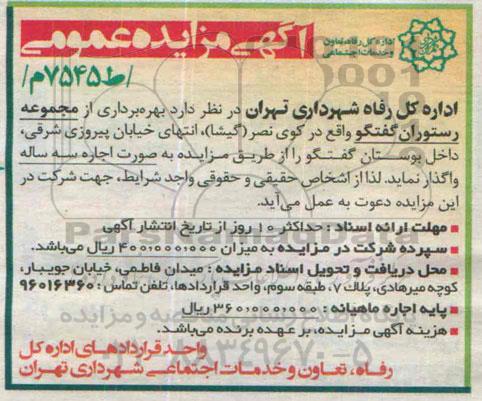 اداره کل رفاه، تعاون
و خدمات اجتماعی
آگهی مزایده عمومی
/ط۷۵۴۵م/
اداره کل رفاه شهرداری تهران در نظر دارد بهره‌برداری از مجموعه
رستوران گفتگو واقع در کوی نصر (گیشا)، انتهای خیابان پیروزی شرقی،
داخل بوستان گفتگو را از طریق مزایده به صورت اجاره سه ساله
واگذار نماید. لذا از اشخاص حقیقی و حقوقی واجد شرایط، جهت شرکت در
این مزایده دعوت به عمل می‌آید.
▪ مهلت ارائه اسناد : حداکثر ۱۰ روز از تاریخ انتشار آگهی
▪ سپرده شرکت در مزایده به میزان ۴۰۰،۰۰۰،۰۰۰ ریال می‌باشد.
▪ محل دریافت و تحویل اسناد مزایده : میدان فاطمی، خیابان جویبار،
کوچه میرهادی، پلاک ۷، طبقه سوم، واحد قراردادها، تلفن تماس : ۹۶۰۱۶۳۶۰
▪ پایه اجاره ماهیانه : ۳۶۰،۰۰۰،۰۰۰ ریال
▪ هزینه آگهی مزایده، بر عهده برنده می‌باشد.
واحد قراردادهای اداره کل
رفاه، تعاون و خدمات اجتماعی شهرداری تهران